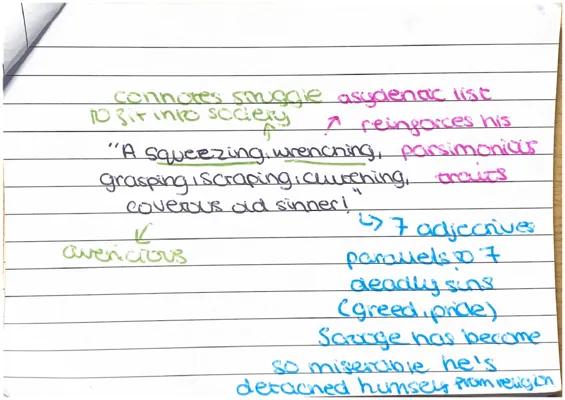 connotes struggle asydenac list
to fit into society
reinforces his
"A squeezing, wrenching, parsimonious
grasping, scraping, clutching, traits
covetous old sinner!"
7 adjectives
avericious
parallels to 7
deadly sins
(greed, pride)
Scrooge has become
so miserable he's
detached humself from religion